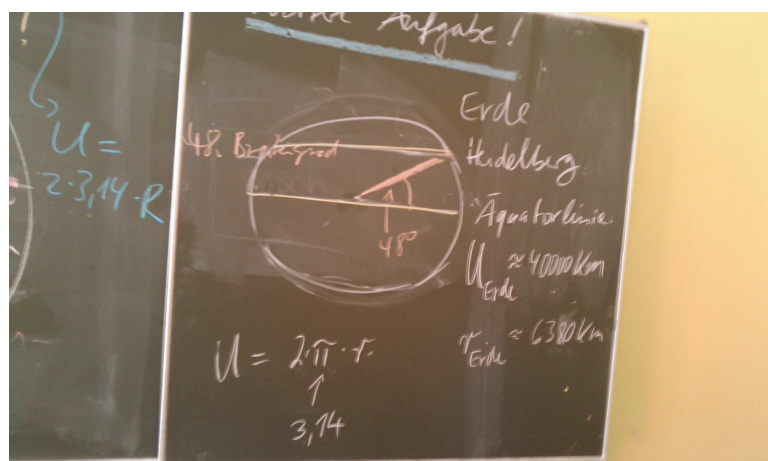 U =
2·3,14·R
Aufgabe!
48. Breitengrad
48°
Erde
Heidelberg
Äquatorlinie
U Erde ≈ 40000 Km
r Erde ≈ 6380 Km
U = 2·π·r.
↑
3,14